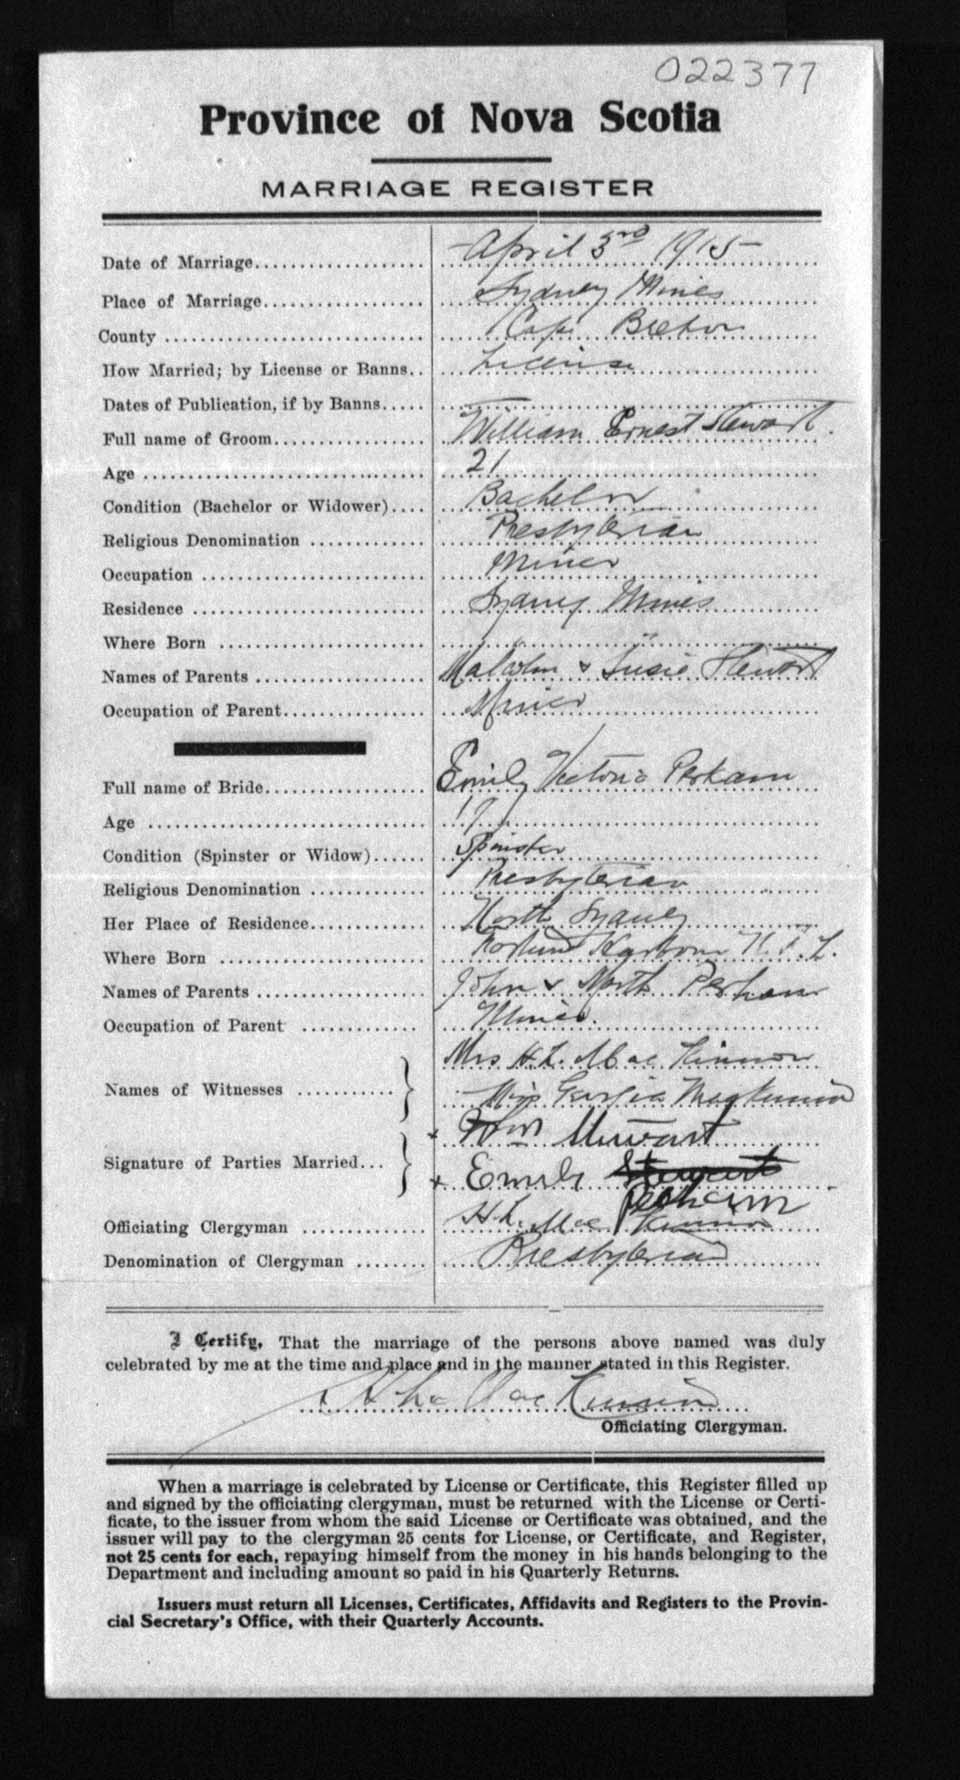 022377
Province of Nova Scotia
MARRIAGE REGISTER
Date of Marriage April 3rd 1915
Place of Marriage Sydney Mines
County Cape Breton
How Married; by License or Banns License
Dates of Publication, if by Banns
Full name of Groom William Ernest Stewart.
Age 21
Condition (Bachelor or Widower) Bachelor
Religious Denomination Presbyterian
Occupation Miner
Residence Sydney Mines
Where Born " "
Names of Parents Malcolm & Susie Stewart
Occupation of Parent Miner
Full name of Bride Emily Victoria Perham
Age 19
Condition (Spinster or Widow) Spinster
Religious Denomination Presbyterian
Her Place of Residence North Sydney
Where Born Harbour N.F.L.
Names of Parents John & Perham
Occupation of Parent Miner.
Names of Witnesses } Mrs H.L. MacKinnon
Miss Georgia MacKinnon
Signature of Parties Married } x Wm Stewart
x Emily Stewart
Perham
Officiating Clergyman H.L. MacKinnon
Denomination of Clergyman Presbyterian
I Certify, That the marriage of the persons above named was duly
celebrated by me at the time and place and in the manner stated in this Register.
MacKinnon
Officiating Clergyman.
When a marriage is celebrated by License or Certificate, this Register filled up
and signed by the officiating clergyman, must be returned with the License or Certi-
ficate, to the issuer from whom the said License or Certificate was obtained, and the
issuer will pay to the clergyman 25 cents for License, or Certificate, and Register,
not 25 cents for each, repaying himself from the money in his hands belonging to the
Department and including amount so paid in his Quarterly Returns.
Issuers must return all Licenses, Certificates, Affidavits and Registers to the Provin-
cial Secretary's Office, with their Quarterly Accounts.